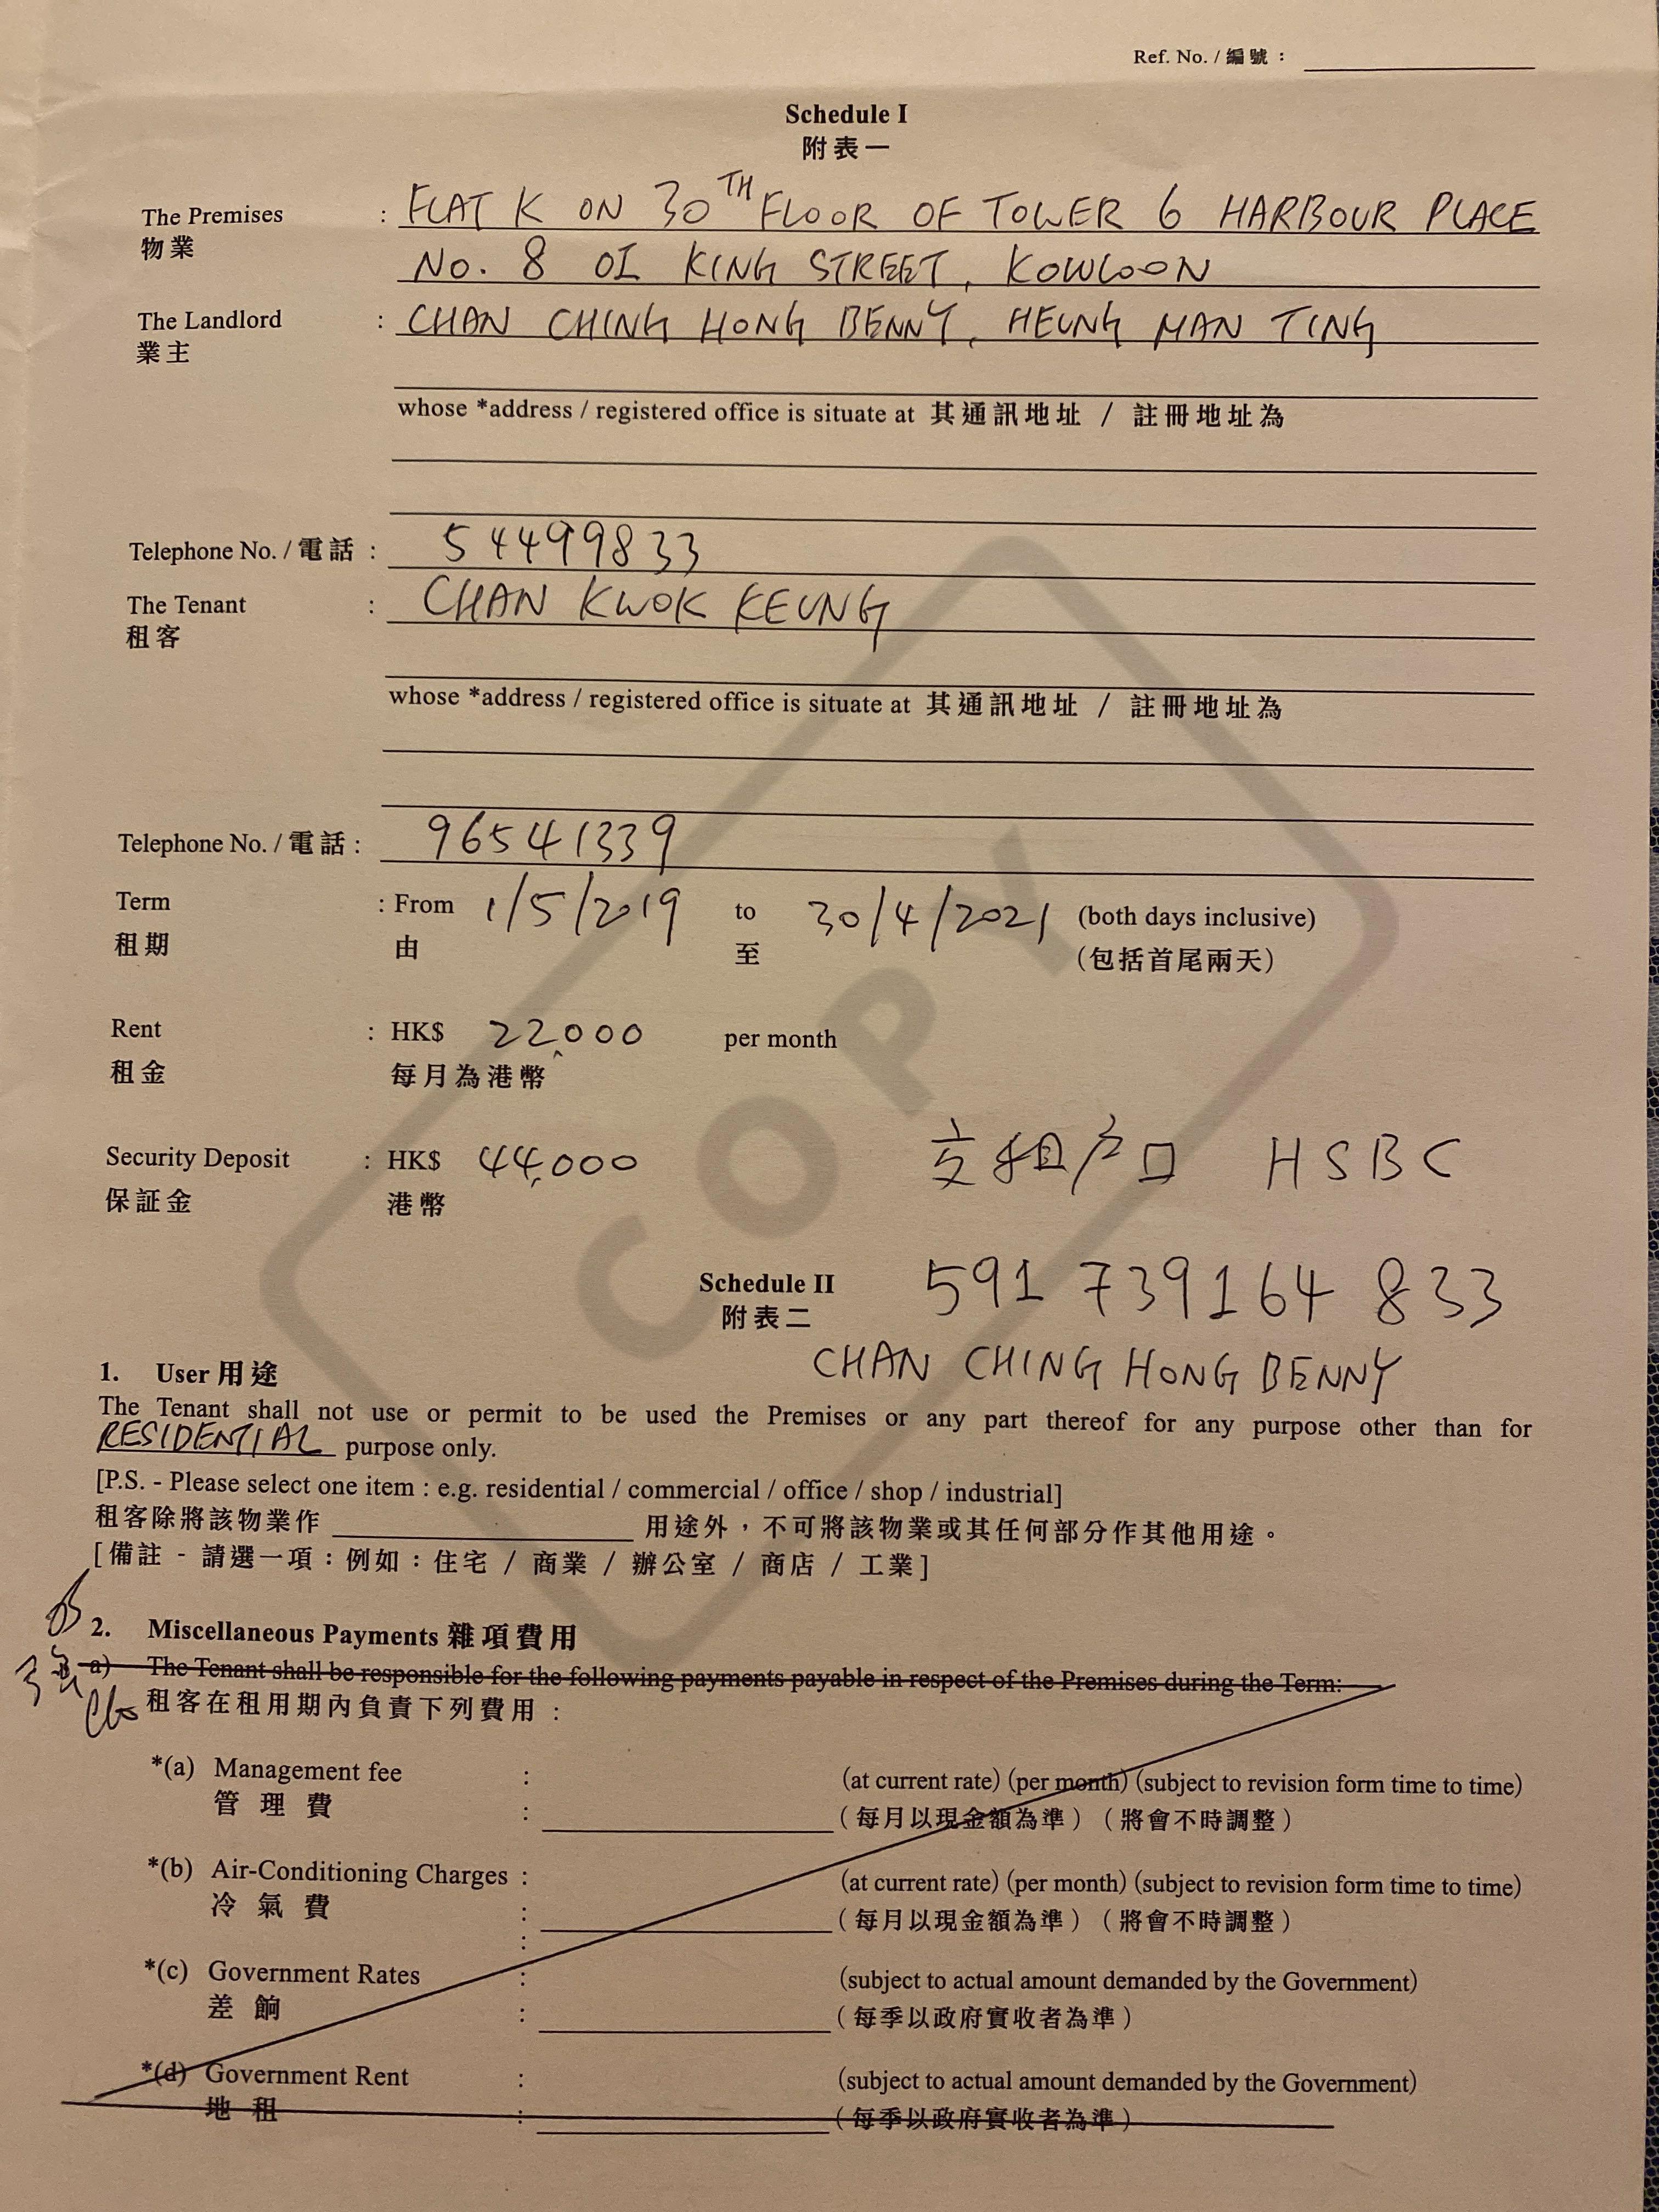 Ref. No. / 編號 :
Schedule I
附表一
The Premises : FLAT K ON 30TH FLOOR OF TOWER 6 HARBOUR PLACE
物業 No. 8 OI KING STREET, KOWLOON
The Landlord : CHAN CHING HONG BENNY, HEUNG MAN TING
業主
whose *address / registered office is situate at 其通訊地址 / 註冊地址為
Telephone No. / 電話 : 54499833
The Tenant : CHAN KWOK KEUNG
租客
whose *address / registered office is situate at 其通訊地址 / 註冊地址為
Telephone No. / 電話 : 96541339
Term : From 1/5/2019 to 30/4/2021 (both days inclusive)
租期 由 至 (包括首尾兩天)
Rent : HK$ 22,000 per month
租金 每月為港幣
Security Deposit : HK$ 44,000 交租户口 HSBC
保証金 港幣
COPY
Schedule II 591 739164 833
附表二
CHAN CHING HONG BENNY
1. User 用途
The Tenant shall not use or permit to be used the Premises or any part thereof for any purpose other than for
RESIDENTIAL purpose only.
[P.S. - Please select one item : e.g. residential / commercial / office / shop / industrial]
租客除將該物業作 用途外，不可將該物業或其任何部分作其他用途。
[備註 - 請選一項：例如：住宅 / 商業 / 辦公室 / 商店 / 工業]
2. Miscellaneous Payments 雜項費用
a) The Tenant shall be responsible for the following payments payable in respect of the Premises during the Term:
租客在租用期內負責下列費用 :
*(a) Management fee : (at current rate) (per month) (subject to revision form time to time)
管理費 : (每月以現金額為準) (將會不時調整)
*(b) Air-Conditioning Charges : (at current rate) (per month) (subject to revision form time to time)
冷氣費 : (每月以現金額為準) (將會不時調整)
*(c) Government Rates : (subject to actual amount demanded by the Government)
差餉 : (每季以政府實收者為準)
*(d) Government Rent : (subject to actual amount demanded by the Government)
地租 : (每季以政府實收者為準)